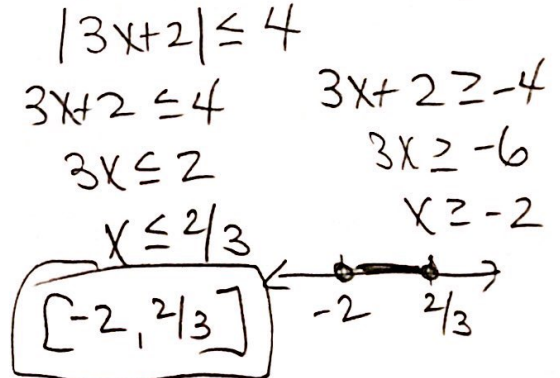 |3x+2| ≤ 4
3x+2 ≤ 4
3x ≤ 2
x ≤ 2/3
[-2, 2/3]
3x+2 ≥ -4
3x ≥ -6
x ≥ -2
-2 2/3